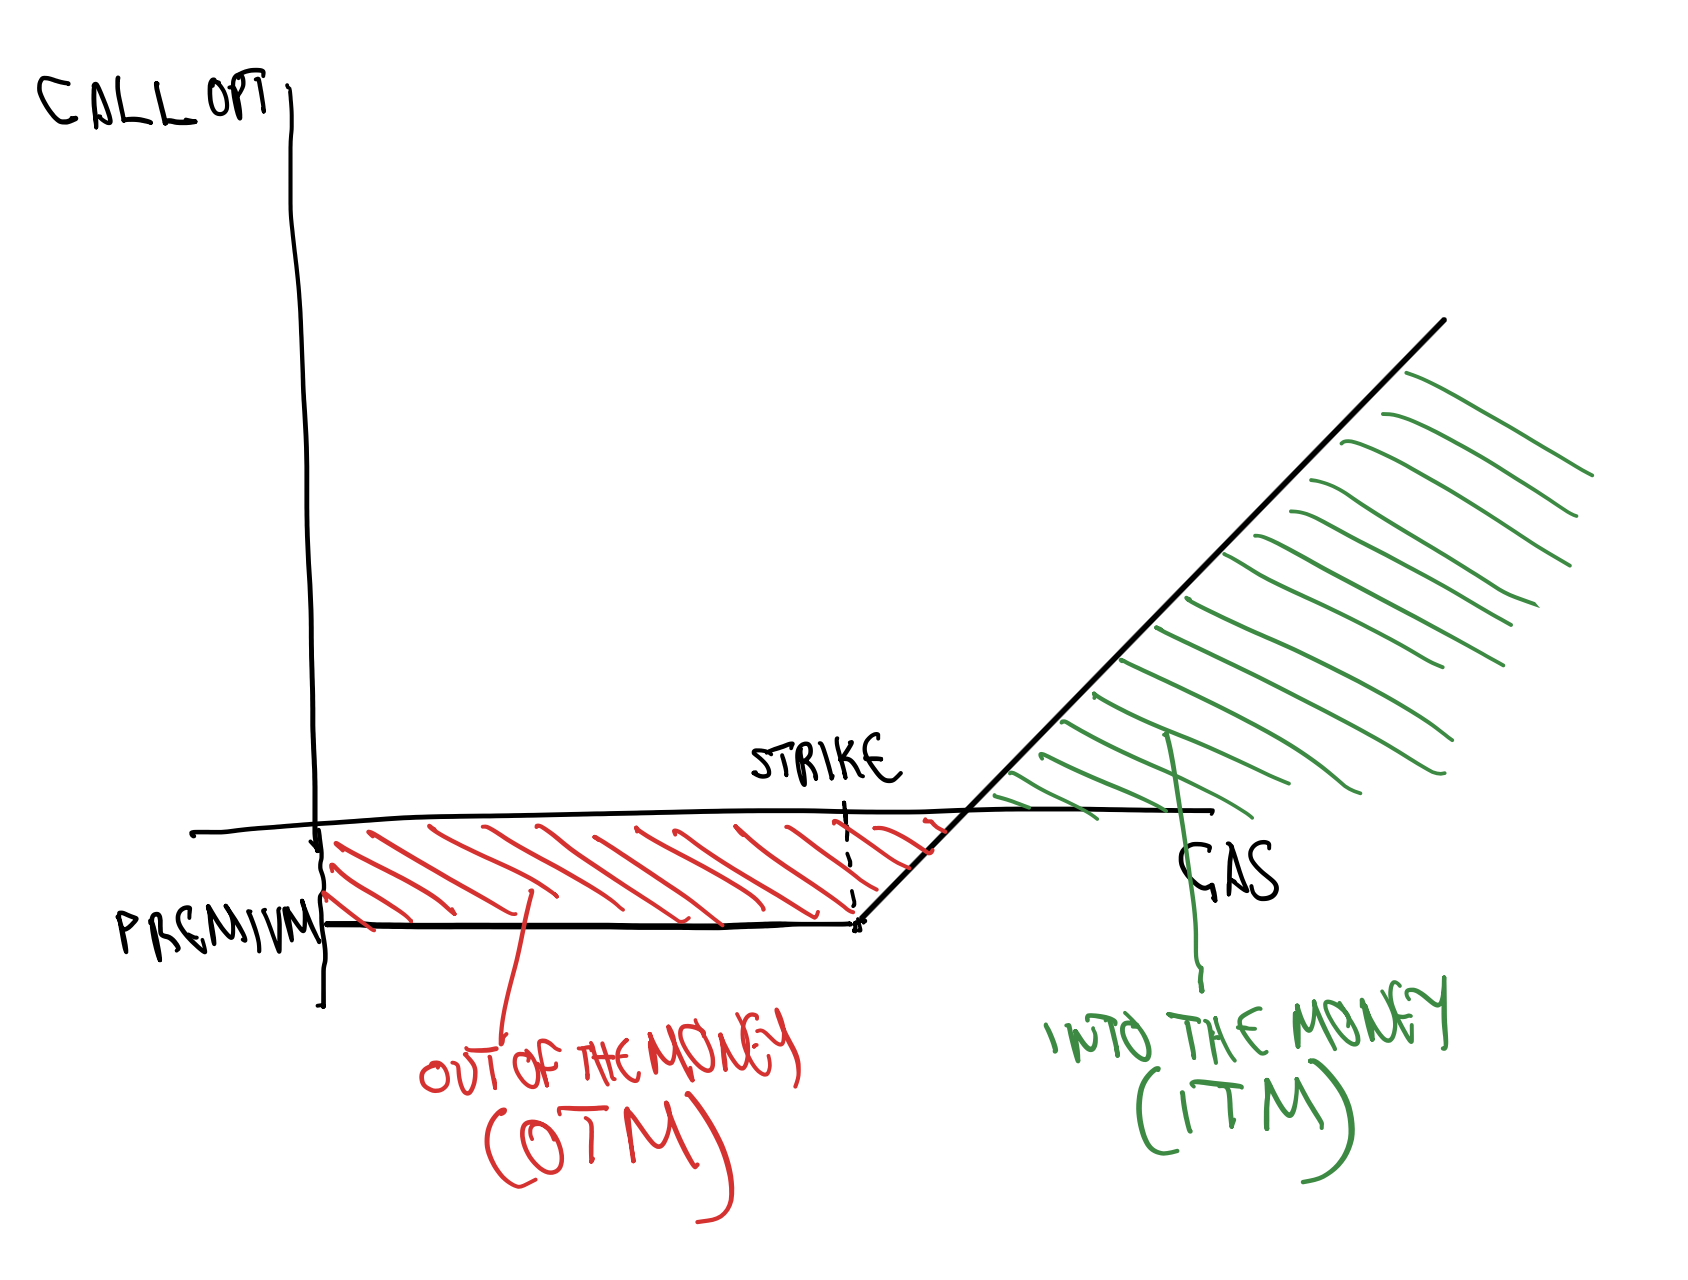 CALL OPT
STRIKE
GAS
PREMIUM
OUT OF THE MONEY
(OTM)
INTO THE MONEY
(ITM)